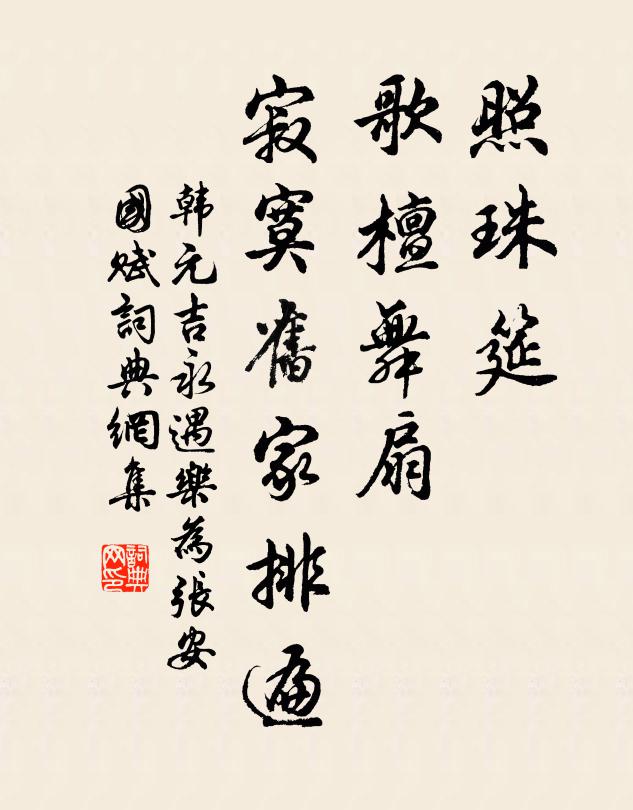 照珠筵
歌檀舞扇
寂寞舊家排遍
韩元吉永遇樂為張安
國赋詞典網集
詞典网印